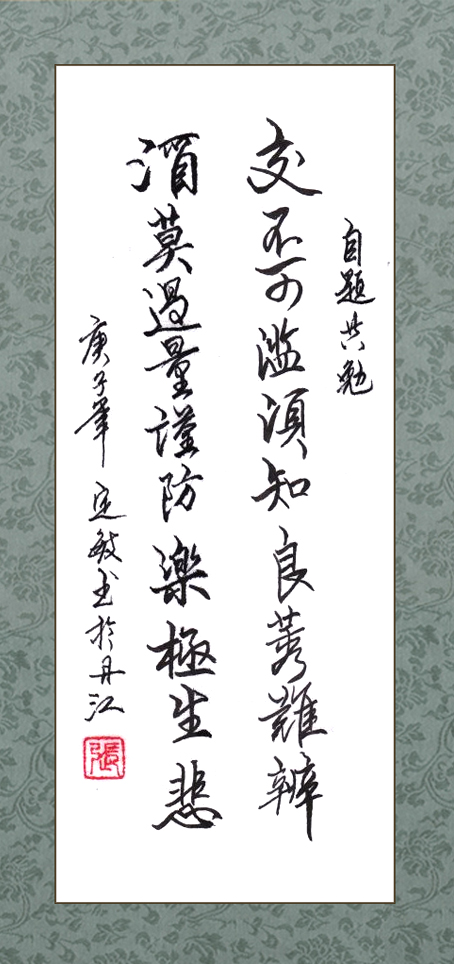 自題共勉
交不可滥須知良莠難辨
酒莫過量謹防樂極生悲
庚子 定敏书於丹江
張